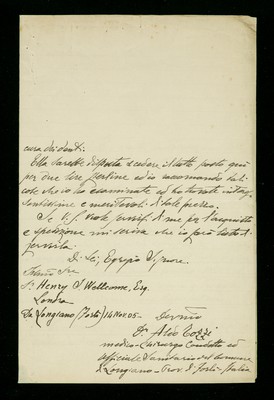 cura dei denti.
Ella sarebbe disposta a cedere il tutto posto qui
per due lire sterline ed io raccomando tali
cose che io ho esaminate ed ho trovate interes
santissime e meritevoli di tale prezzo.
Se V. S. vuole servirsi di me per l'acquisto
e spedizione mi scriva che io farò tutto il
possibile
Di Lei, Egregio Signore.
Sr Henry S Wellcome, Esq.
Londra
Da Longiano (Forlì) 14 Nov 05 - Devmo
Dr Aldo
medico-chirurgo Condotto ed
Ufficiale Sanitario del Comune
di Longiano - Prov. di Forlì - Italia